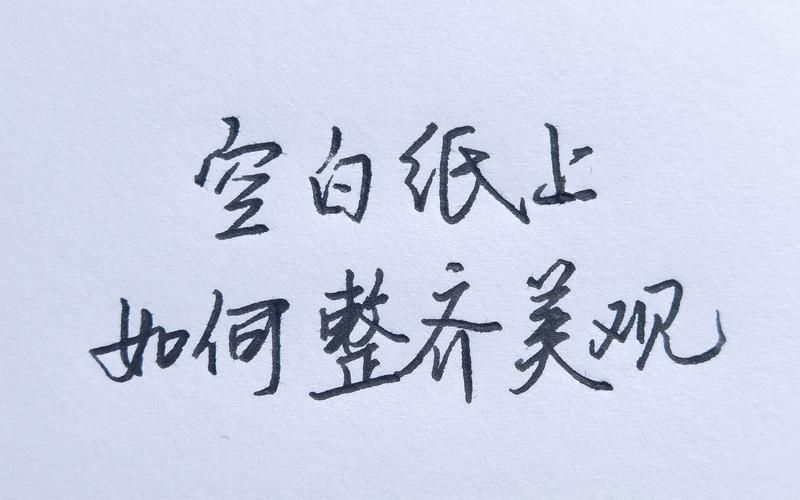 空白纸上
如何整齐美观